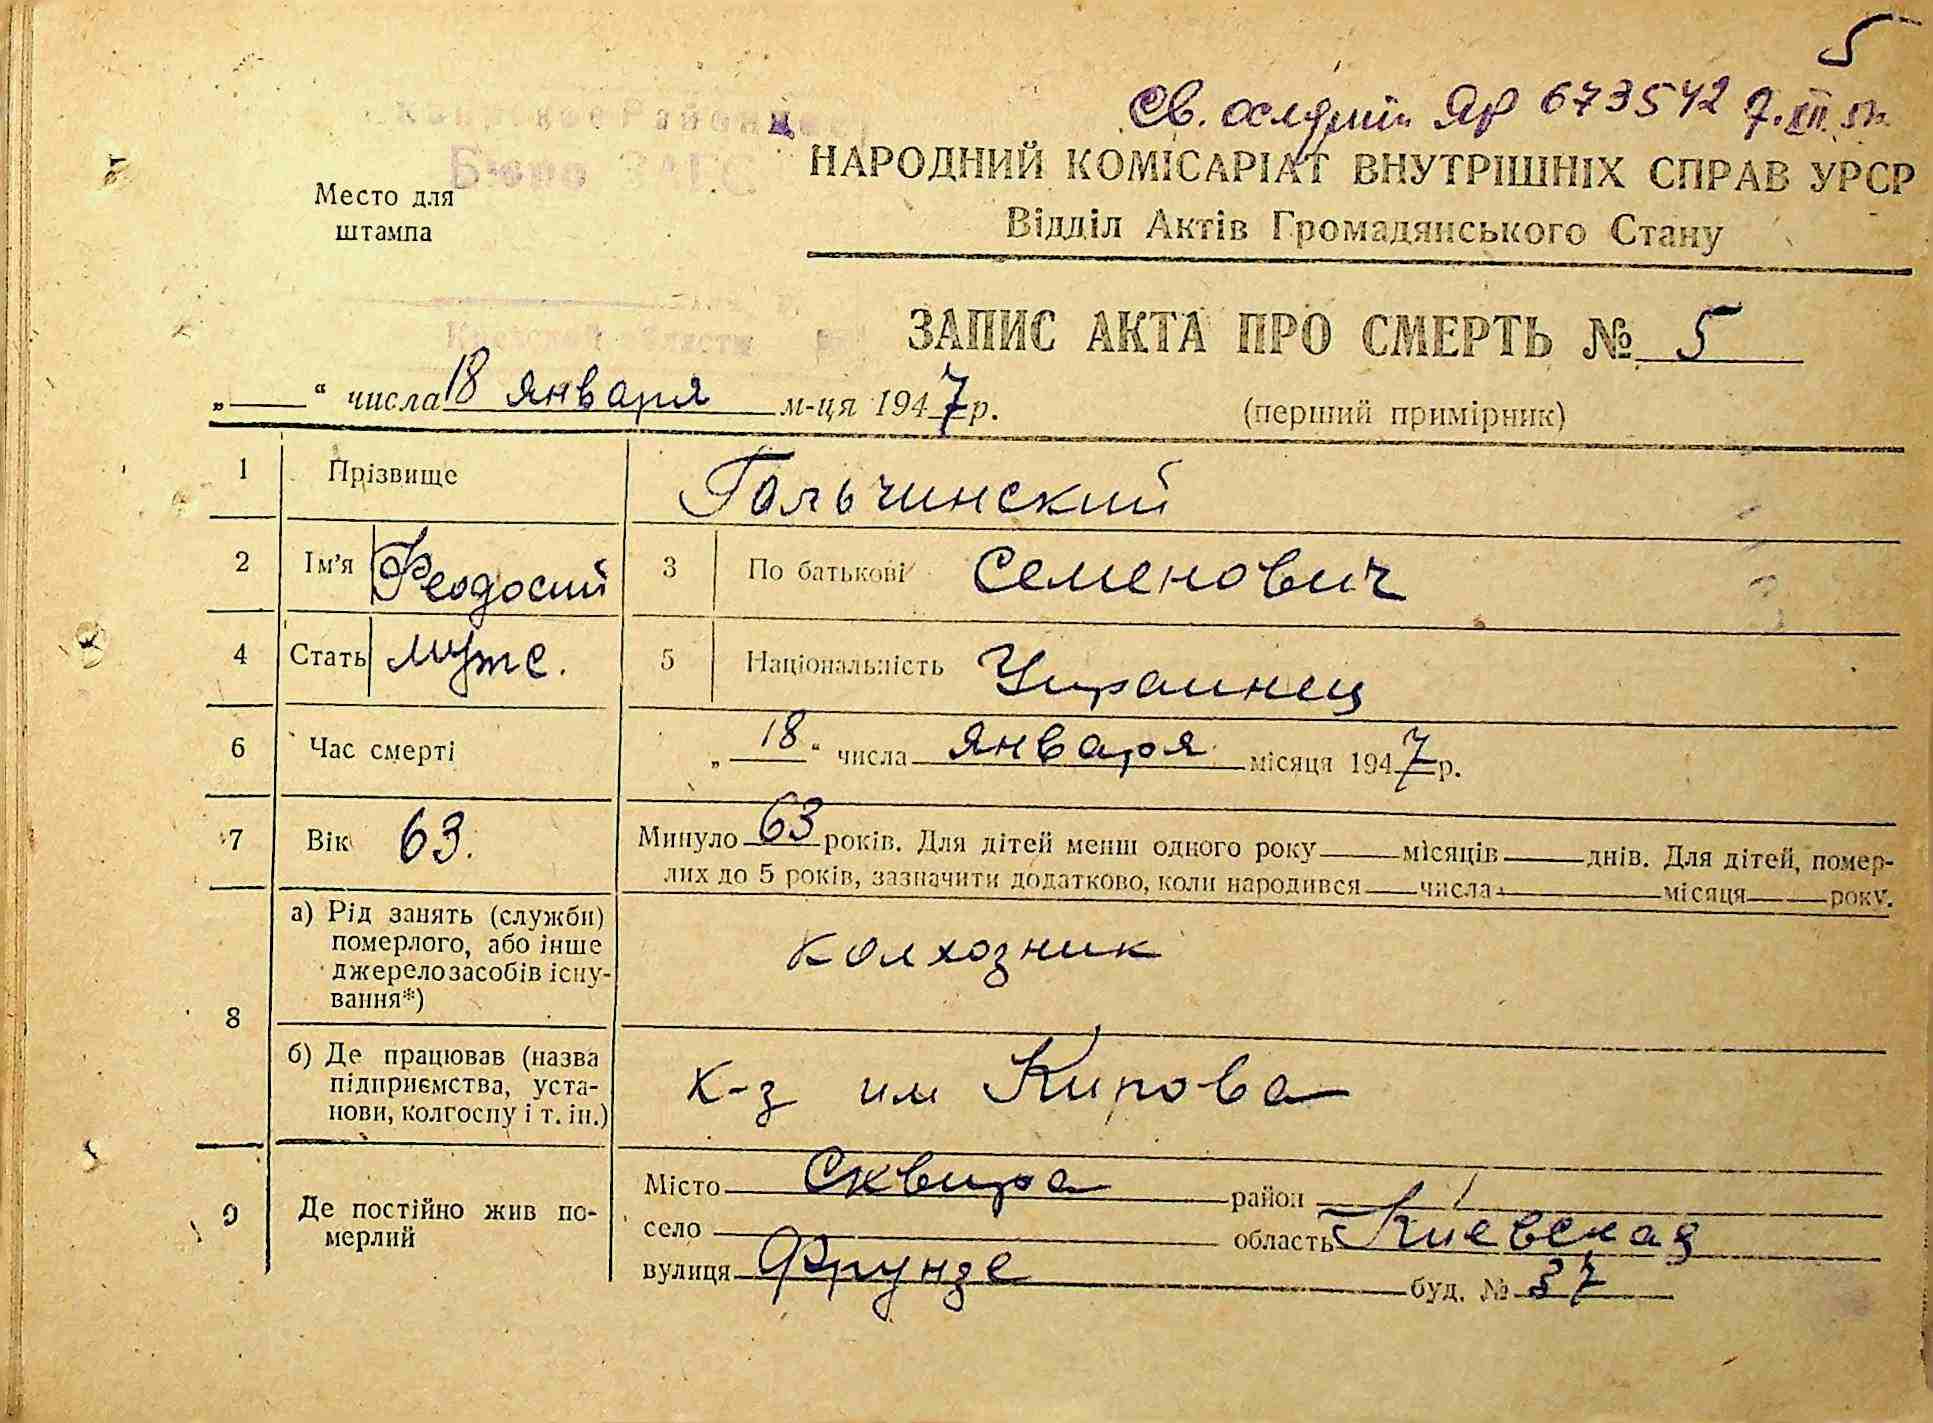 5
Св. ЯР 673542 7.XII.
Бюро ЗАГС
НАРОДНИЙ КОМІСАРІАТ ВНУТРІШНІХ СПРАВ УРСР
Відділ Актів Громадянського Стану
Место для
штампа
Киевской области
ЗАПИС АКТА ПРО СМЕРТЬ № 5
„ “ числа 18 января м-ця 1947 р.
(перший примірник)
1 Прізвище Гольчинский
2 Ім’я Феодосий 3 По батькові Семенович
4 Стать муж. 5 Національність Украинец
6 Час смерті „18“ числа января місяця 1947 р.
7 Вік 63. Минуло 63 років. Для дітей менш одного року місяців днів. Для дітей, помер-
лих до 5 років, зазначити додатково, коли народився числа місяця року.
8 а) Рід занять (служби)
померлого, або інше
джерело засобів існу-
вання*)
колхозник
б) Де працював (назва
підприємства, уста-
нови, колгоспу і т. ін.)
к-з им Кирова
9 Де постійно жив по-
мерлий
Місто Сквира район
село область Киевская
вулиця Фрунзе буд. № 37